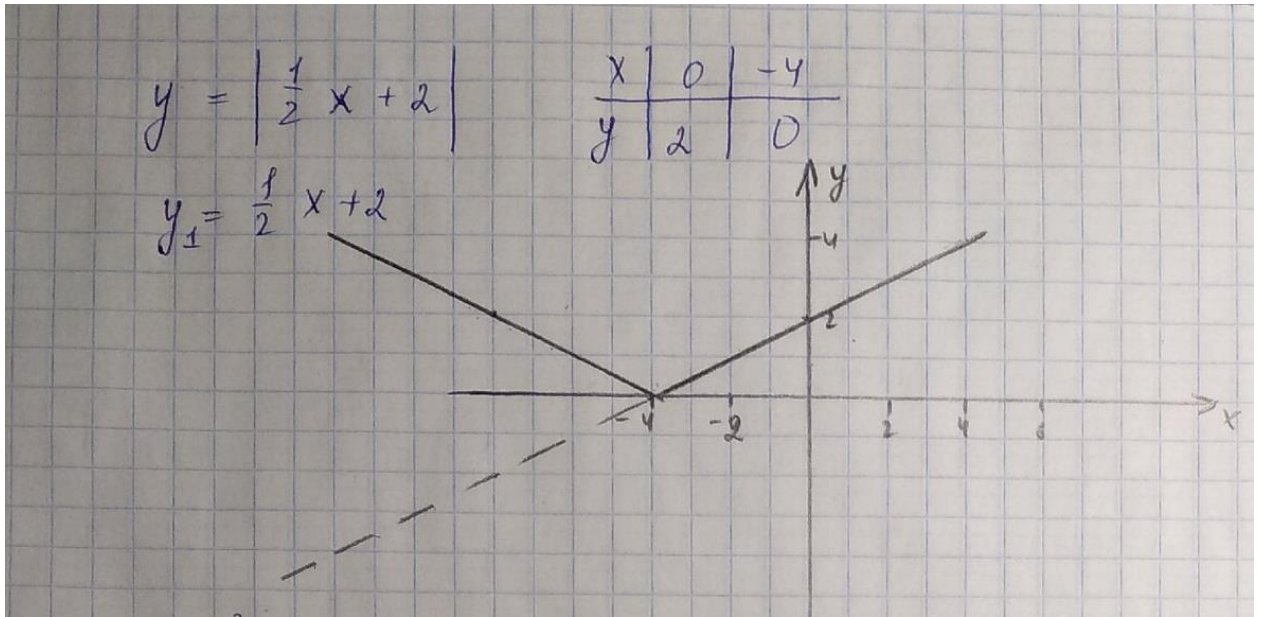 y = |1/2 x + 2|
x | 0 | -4
y | 2 | 0
y₁ = 1/2 x + 2
y
4
2
-4 -2 2 4 6 x